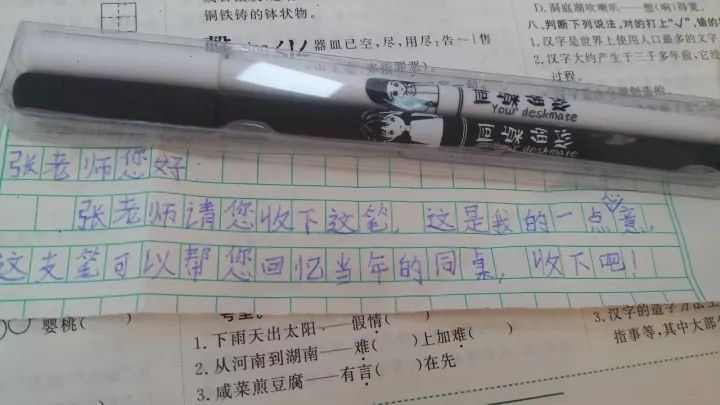 铜铁铸的钵状物。
器皿已空,尽,用尽:告~|售
D. 洞庭湖吹喇叭——想(响)得宽。
八、判断下列说法,对的打上“√”,错的
1. 汉字是世界上使用人口最多的文字
2. 汉字大约产生于三千多年前,它经
过程。
同桌的你
Your deskmate
同桌的你
Your deskmate
张老师您好:
张老师请您收下这笔,这是我的一点心意,
这支笔可以帮您回忆当年的同桌,收下吧!
樱桃( )
1. 下雨天出太阳——假情( )
2. 从河南到湖南——难( )上加难( )
3. 咸菜煎豆腐——有言( )在先
3. 汉字的造字方法主
指事等,其中大部